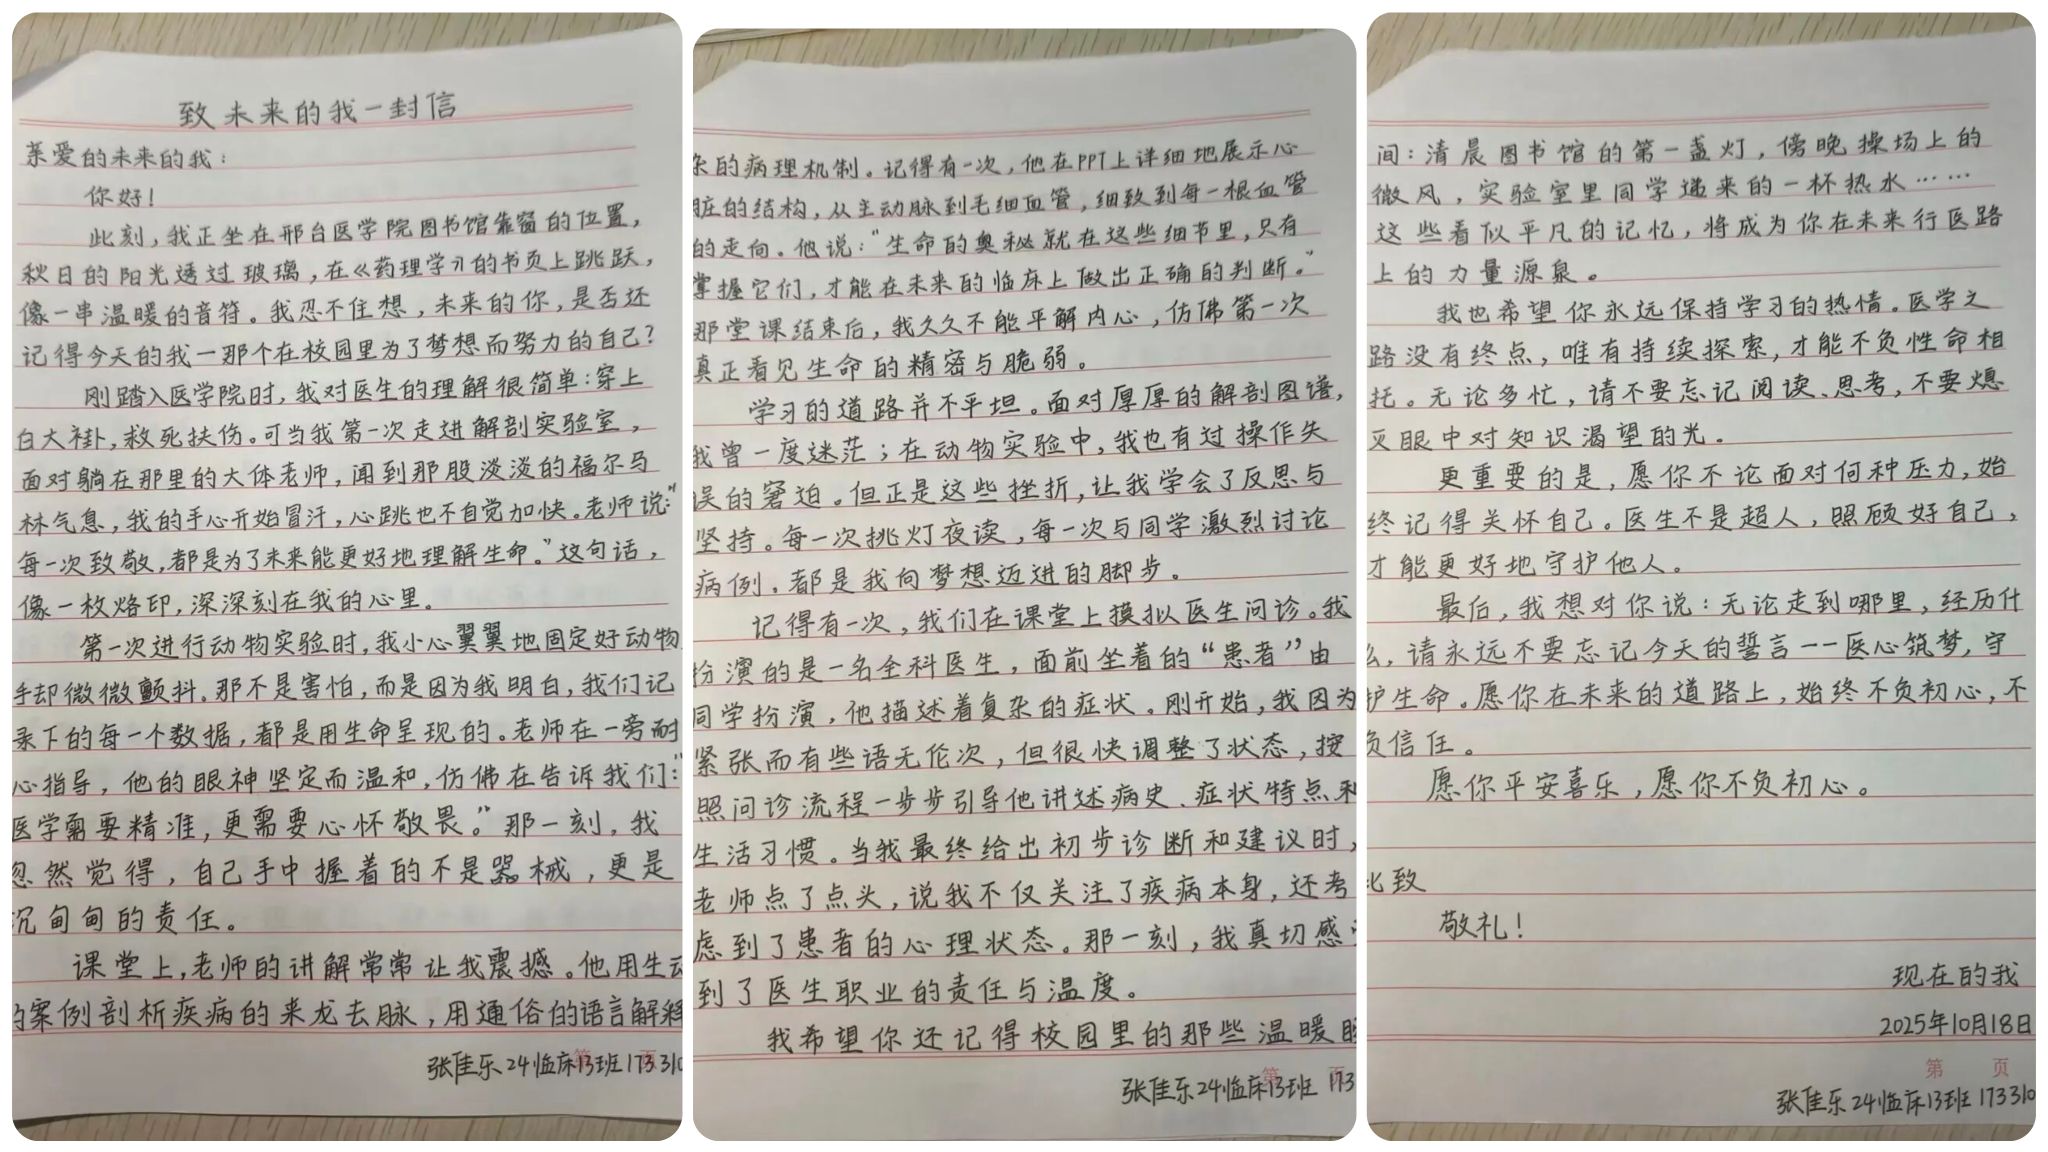 致未来的我一封信
亲爱的未来的我：
你好！
此刻，我正坐在邢台医学院图书馆靠窗的位置，
秋日的阳光透过玻璃，在《药理学》的书页上跳跃，
像一串温暖的音符。我忍不住想，未来的你，是否还
记得今天的我一那个在校园里为了梦想而努力的自己？
刚踏入医学院时，我对医生的理解很简单：穿上
白大褂，救死扶伤。可当我第一次走进解剖实验室，
面对躺在那里的大体老师，闻到那股淡淡的福尔马
林气息，我的手心开始冒汗，心跳也不自觉加快。老师说：“
每一次致敬，都是为了未来能更好地理解生命。”这句话，
像一枚烙印，深深刻在我的心里。
第一次进行动物实验时，我小心翼翼地固定好动物
手却微微颤抖。那不是害怕，而是因为我明白，我们记
录下的每一个数据，都是用生命呈现的。老师在一旁耐
心指导，他的眼神坚定而温和，仿佛在告诉我们：“
医学需要精准，更需要心怀敬畏。”那一刻，我
忽然觉得，自己手中握着的不是器械，更是
沉甸甸的责任。
课堂上，老师的讲解常常让我震撼。他用生动
的案例剖析疾病的来龙去脉，用通俗的语言解释
第 页
张佳乐24临床13班173310
杂的病理机制。记得有一次，他在PPT上详细地展示心
脏的结构，从主动脉到毛细血管，细致到每一根血管
的走向。他说：“生命的奥秘就在这些细节里，只有
掌握它们，才能在未来的临床上做出正确的判断。”
那堂课结束后，我久久不能平解内心，仿佛第一次
真正看见生命的精密与脆弱。
学习的道路并不平坦。面对厚厚的解剖图谱，
我曾一度迷茫；在动物实验中，我也有过操作失
误的窘迫。但正是这些挫折，让我学会了反思与
坚持。每一次挑灯夜读，每一次与同学激烈讨论
病例，都是我向梦想迈进的脚步。
记得有一次，我们在课堂上摸拟医生问诊。我
扮演的是一名全科医生，面前坐着的“患者”由
同学扮演，他描述着复杂的症状。刚开始，我因为
紧张而有些语无伦次，但很快调整了状态，按
照问诊流程一步步引导他讲述病史、症状特点和
生活习惯。当我最终给出初步诊断和建议时，
老师点了点头，说我不仅关注了疾病本身，还考
虑到了患者的心理状态。那一刻，我真切感受
到了医生职业的责任与温度。
我希望你还记得校园里的那些温暖瞬
第 页
张佳乐24临床13班 173
间：清晨图书馆的第一盏灯，傍晚操场上的
微风，实验室里同学递来的一杯热水……
这些看似平凡的记忆，将成为你在未来行医路
上的力量源泉。
我也希望你永远保持学习的热情。医学之
路没有终点，唯有持续探索，才能不负性命相
托。无论多忙，请不要忘记阅读、思考，不要熄
灭眼中对知识渴望的光。
更重要的是，愿你不论面对何种压力，始
终记得关怀自己。医生不是超人，照顾好自己，
才能更好地守护他人。
最后，我想对你说：无论走到哪里，经历什
么，请永远不要忘记今天的誓言——医心筑梦，守
护生命。愿你在未来的道路上，始终不负初心，不
负信任。
愿你平安喜乐，愿你不负初心。
此致
敬礼！
现在的我
2025年10月18日
第 页
张佳乐24临床13班 173310